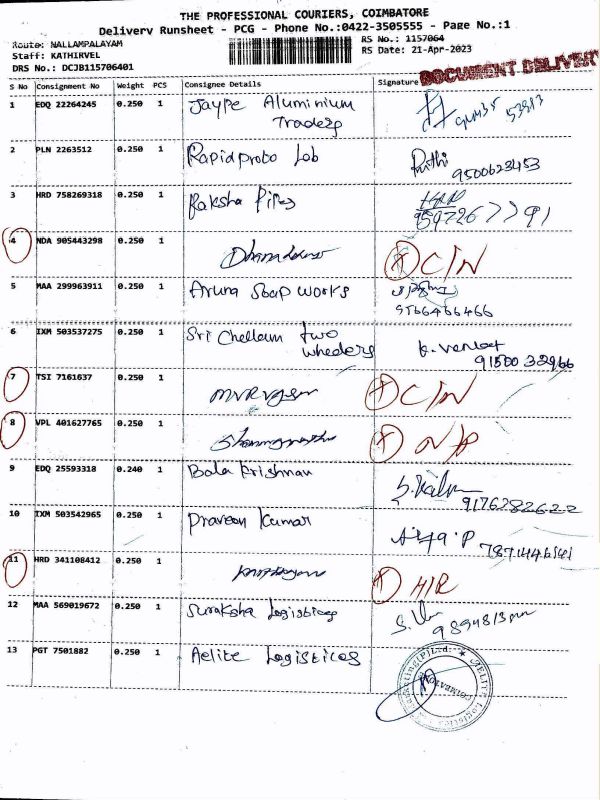 THE PROFESSIONAL COURIERS, COIMBATORE
Delivery Runsheet - PCG - Phone No.:0422-3505555 - Page No.:1
Route: NALLAMPALAYAM
Staff: KATHIRVEL
DRS No.: DCJB115706401
RS No.: 1157064
RS Date: 21-Apr-2023
DOCUMENT DELIVERY
S No Consignment No Weight PCS Consignee Details Signature
1 EDQ 22264245 0.250 1 Jaype Aluminium
Traders
2 PLN 2263512 0.250 1 Rapidproto Lab
9500623453
3 HRD 758269318 0.250 1 Raksha Pipes
9597267791
4 NDA 905443298 0.250 1 C/N
5 MAA 299963911 0.250 1 Aruna Soap works
9566466466
6 IXM 503537275 0.250 1 Sri Chellam two
wheelers
K. Venkat
7 TSI 7161637 0.250 1 C/N
8 VPL 401627765 0.250 1 N/P
9 EDQ 25593318 0.240 1 Bala Krishnan
9176282622
10 IXM 503542965 0.250 1 Praveen Kumar
11 HRD 341108412 0.250 1
12 MAA 569019672 0.250 1 Suraksha Logistics
13 PGT 7501882 0.250 1 Aelite Logistices